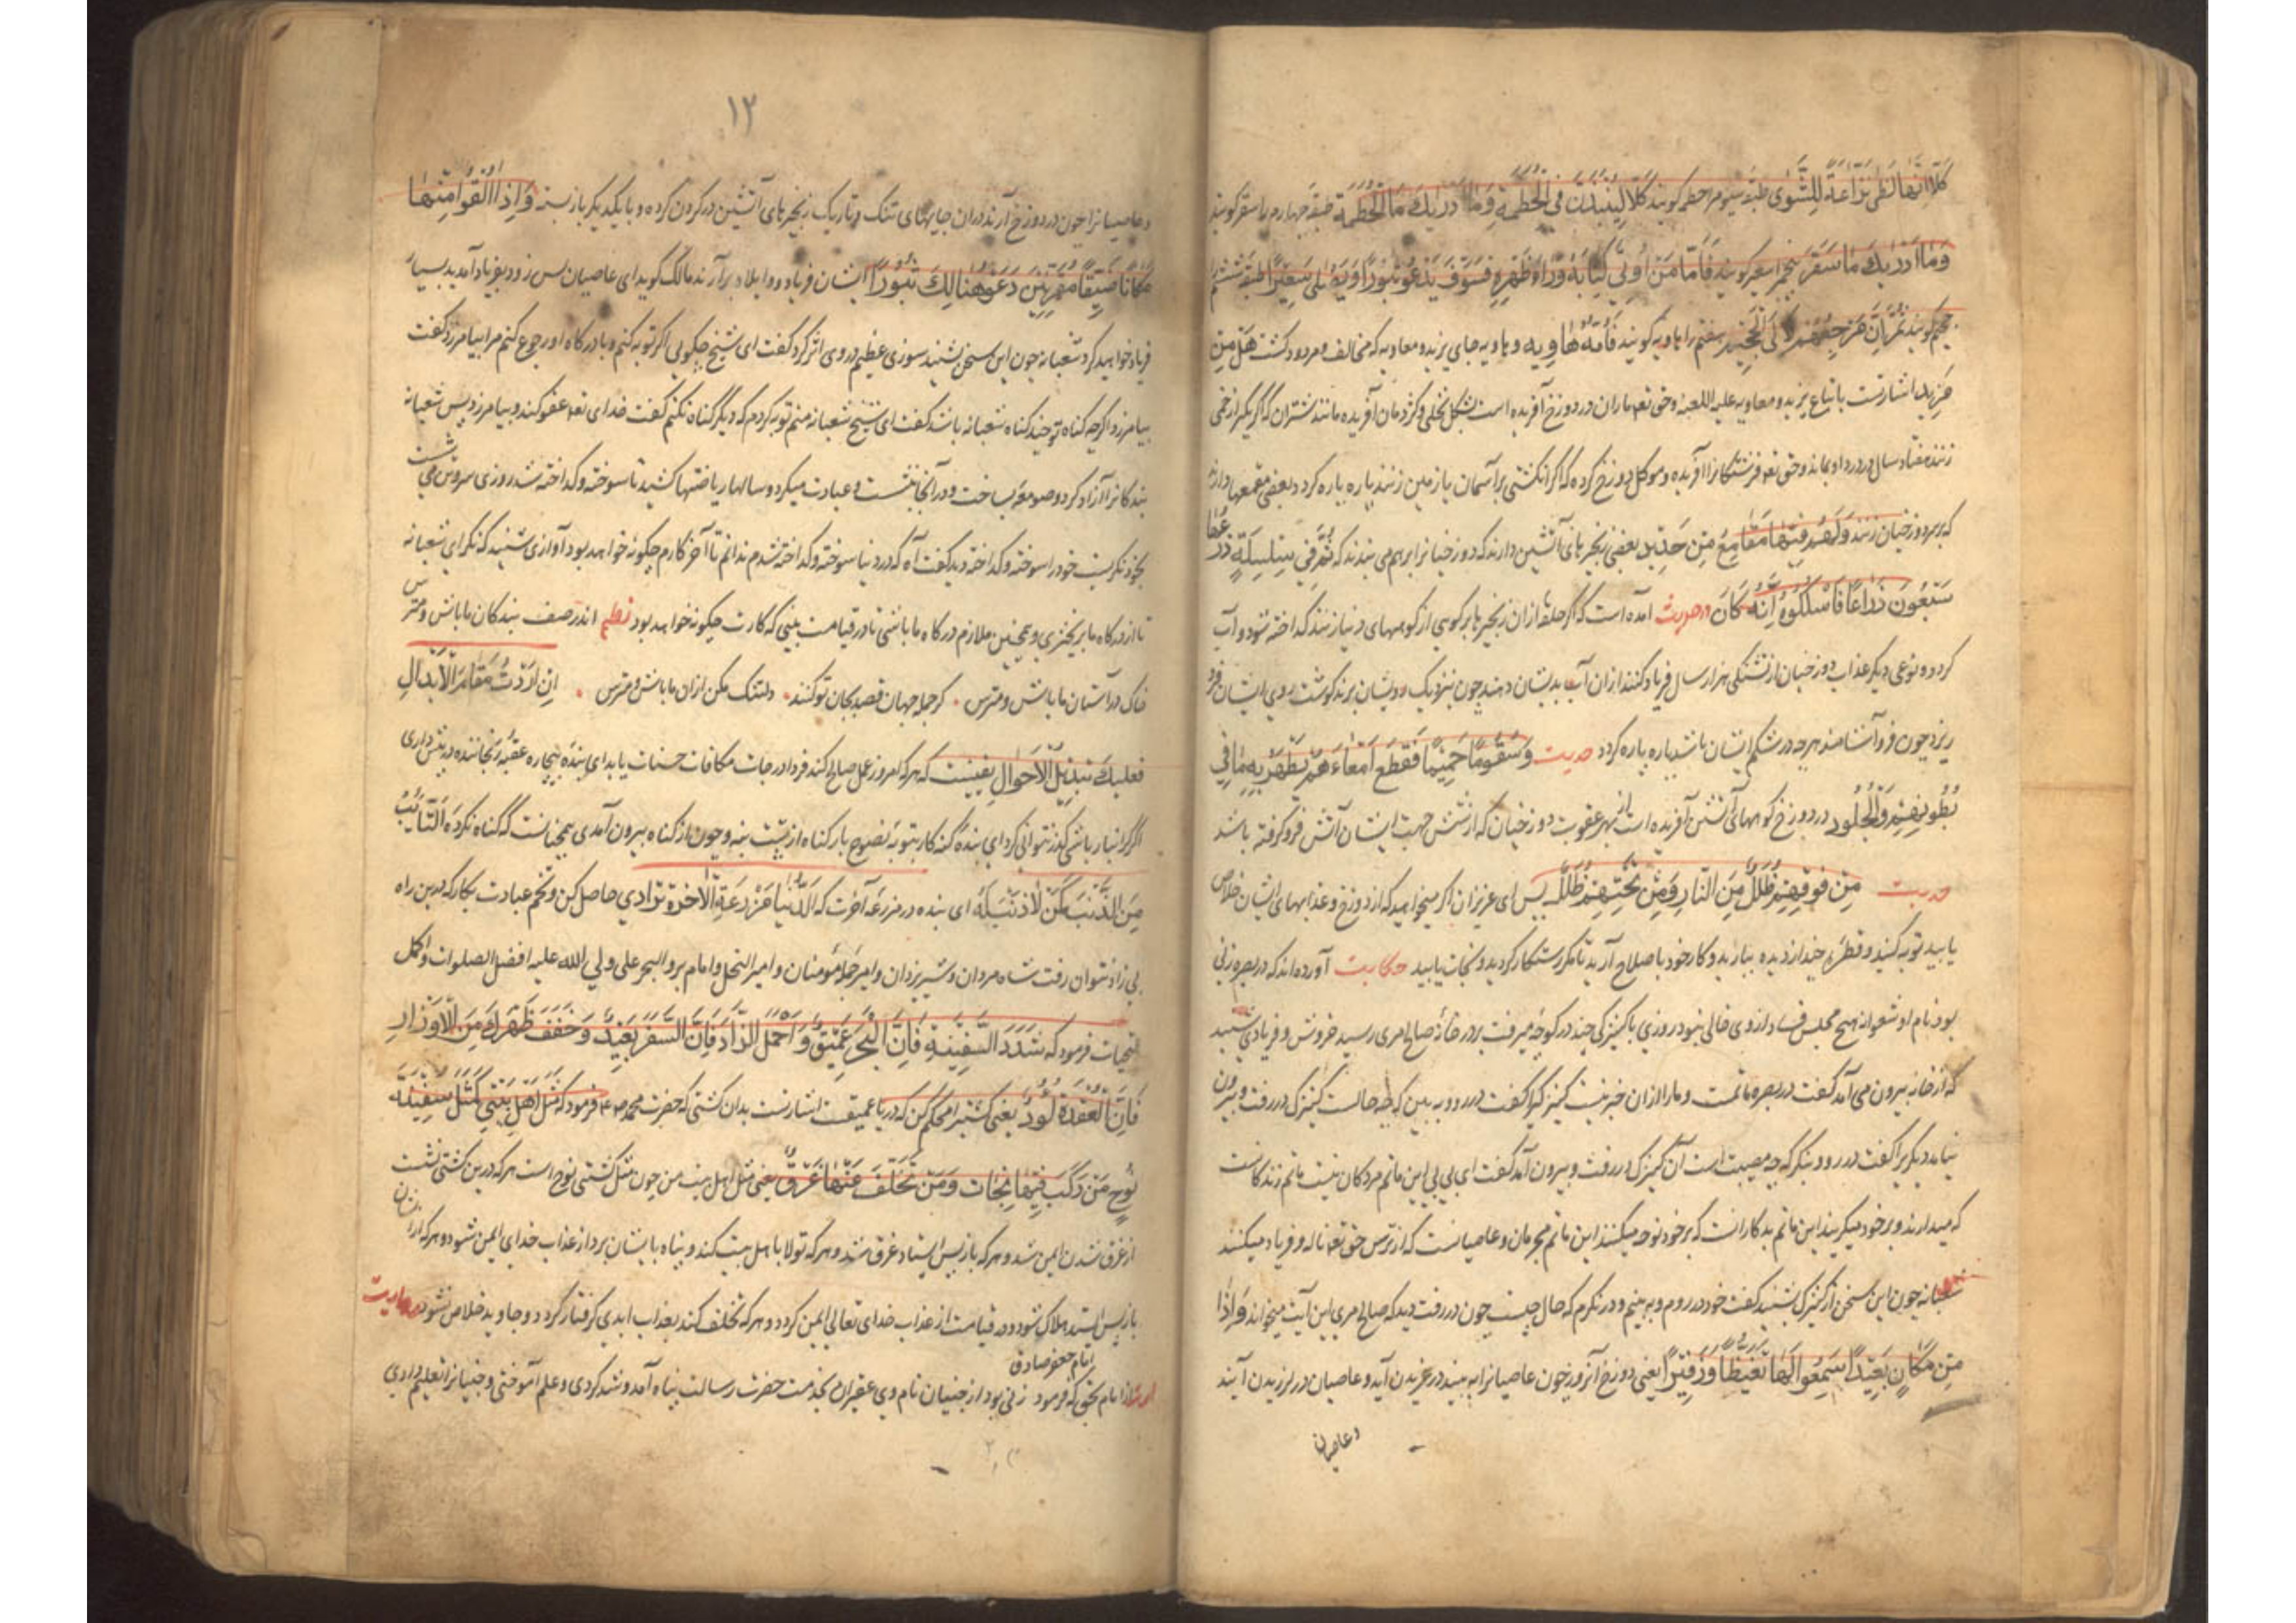 كَلَّا اِنَّهَا لَظٰى نَزَّاعَةً لِلشَّوٰى طبقه سیوم را حطمه کویند كَلَّا لَيُنْبَذَنَّ فِى الْحُطَمَةِ وَمَا اَدْرٰيكَ مَا الْحُطَمَة طبقه چهارم را سقر کویند
وَمَا اَدْرٰيكَ مَا سَقَر پنجم را سعیر کویند فَاَمَّا مَنْ اُوتِىَ كِتَابَهُ وَرَاءَ ظَهْرِهِ فَسَوْفَ يَدْعُو ثُبُورًا وَيَصْلٰى سَعِيرًا طبقه ششم
جحیم کویند ثُمَّ اِنَّ مَرْجِعَهُمْ لَاِلَى الْجَحِيمِ هفتم را هاویه کویند فَاُمُّهُ هَاوِيَه و هاویه جای یزید و معاویه که مخالف و مردود کشت هَلْ مِنْ
مَزِيد اشارتست باتباع یزید و معاویه علیه اللعنه و حق تعه ماران در دوزخ آفریده است بشکل نخلی و کژدمان آفریده مانند شتران که اکر یکبار زخمی
زنند هفتاد سال درد او بماند و حق تعه فرشتکانرا آفریده و موکل دوزخ کرده که اکر انکشتی بر آسمان یا زمین زنند پاره پاره کردد بعضی مقمعها دارند
که بر سر دوزخیان زنند وَلَهُمْ فِيهَا مَقَامِعُ مِنْ حَدِيدٍ بعضی زنجیرهای آتشین دارند که دوزخیانرا بر هم می بندند که ثُمَّ فِى سِلْسِلَةٍ ذَرْعُهَا
سَبْعُونَ ذِرَاعًا فَاسْلُكُوهُ اِنَّهُ كَانَ در حدیث آمده است که اکر حلقه ازان زنجیرها بر کوهی از کوههای دنیا زنند کداخته شود و آب
کردد و نوعی دیکر عذاب دوزخیان از تشنکی هزار سال فریاد کنند ازان آب بدیشان دهند چون بنزدیک رویشان برند کوشت روی ایشان فرو
ریزد چون فرو آشامند هرچه در شکم ایشان باشد پاره پاره کردد حدیت وَسُقُوا مَاءً حَمِيمًا فَقَطَّعَ اَمْعَاءَهُمْ يُصْهَرُ بِهِ مَا فِى
بُطُونِهِمْ وَالْجُلُود در دوزخ کوههای آتشین آفریده است از بهر عقوبت دوزخیان که از شش جهت ایشان آتش فرو کرفته باشد
حدیت مِنْ فَوْقِهِمْ ظُلَلٌ مِنَ النَّارِ وَمِنْ تَحْتِهِمْ ظُلَلٌ پس ای عزیزان اکر میخواهید که از دوزخ و عذابهای ایشان خلاص
یابید توبه کنید و قطرهٔ چند از دیده ببارید و کار خود باصلاح آرید تا مکر رستکار کردید و نجات یابید حکایت آورده اند که در بصره زنی
بود نام او شعوانه هیچ مجلس فساد از وی خالی نبود روزی با کنیزکی چند در کوچه میرفت بدر خانهٔ صالح مری رسید خروش و فریادی شنید
که از خانه بیرون می آمد کفت در بصره ماتمست و ما را ازان خبر نیست کنیزکیرا کفت در رو و ببین که چه حالست کنیزک در رفت و بیرون
نیامد دیکریرا کفت در رو و بنکر که چه مصیبت است آن کنیزک در رفت و بیرون آمد کفت ای بی بی این ماتم مردکان نیست ماتم زندکانست
که میدارند و بر خود میکریند این ماتم بدکارانست که بر خود نوحه میکنند این ماتم مجرمان و عاصیانست که از ترس حق تعه ناله و فریاد میکنند
شعبانه چون این سخن از کنیزک بشنید کفت خود در روم و ببینم و در نکرم که حال چیست چون در رفت دید که صالح مری این آیت میخواند وَاِذَا
مِنْ مَكَانٍ بَعِيدٍ سَمِعُوا لَهَا تَغَيُّظًا وَزَفِيرًا یعنی دوزخ آنروز چون عاصیانرا ببیند در غریدن آید و عاصیان در لرزیدن آیند
و عاصیان
١٢
و عاصیانرا چون در دوزخ آرند دران جایهای تنک و تاریک زنجیرهای آتشین در کردن کرده و با یکدیکر باز بسته وَاِذَا اُلْقُوا مِنْهَا
مَكَانًا ضَيِّقًا مُقَرَّنِينَ دَعَوْا هُنَالِكَ ثُبُورًا ایشان فریاد و واویلا برآرند مالک کوید ای عاصیان بس زود بفریاد آمدید بسیار
فریاد خواهید کرد شعبانه چون این سخن بشنید سوزی عظیم در وی اثر کرد کفت ای شیخ چکویی اکر توبه کنم و با درکاه او رجوع کنم مرا بیامرزد کفت
بیامرزد اکرچه کناه تو چند کناه شعبانه باشد کفت ای شیخ شعبانه منم توبه کردم که دیکر کناه نکنم کفت خدای تعه عفو کند و بیامرزد پس شعبانه
بندکانرا آزاد کرد و صومعه بساخت و در آنجا بنشست و عبادت میکرد و سالها ریاضتها کشید تا سوخته و کداخته شد روزی سر و تن می شست
بخود نکریست خود را سوخته و کداخته دید کفت آه که در دنیا سوخته و کداخته شدم ندانم تا آخر کارم چکونه خواهد بود آوازی شنید که نکر ای شعبانه
تا از درکاه ما برنخیزی و همچنین ملازم درکاه ما باشی تا در قیامت ببینی که کارت چکونه خواهد بود نظم اندر صف بندکان ما باش و مترس
خاک در آستان ما باش و مترس . کر جمله جهان قصد بجان تو کنند . دلتنک مکن ازان ما باش و مترس . اِنْ اَرَدْتَ مَقَامَ الْاَبْدَالِ
فَعَلَيْكَ تَبْدِيلُ الْاَحْوَال یقینست که هرکه امروز عمل صالح کند فردا درجات مکافات حسنات یابد ای بندهٔ بیچاره عقبهٔ رنجاننده در پیش داری
اکر کرانبار باشی کذر نتوانی کرد ای بندهٔ کنه کار بتوبه نصوح بار کناه از پشت بنه و چون از کناه بیرون آمدی همچنانست که کناه نکردهٔ اَلتَّائِبُ
مِنَ الذَّنْبِ كَمَنْ لَا ذَنْبَ لَهُ ای بنده در مزرعه آخرت که اَلدُّنْيَا مَزْرَعَةُ الْاٰخِرَةِ زادی حاصل کن و تخم عبادت بکار که درین راه
بی زاد نتوان رفت شاه مردان و شیر یزدان و امیر جملهٔ مؤمنان و امیر النحل و امام بر و البحر علی ولی الله علیه افضل الصلوات و اکمل
التحیات فرمود که شَدِّدِ السَّفِينَةِ فَاِنَّ الْبَحْرَ عَمِيقٌ وَاحْمِلِ الزَّادَ فَاِنَّ السَّفَرَ بَعِيدٌ وَخَفِّفْ ظَهْرَكَ مِنَ الْاَوْزَارِ
فَاِنَّ الْعَقَبَةَ كَؤُدٌ یعنی کشتیرا محکم کن که دریا عمیقست اشارتست بدان کشتی که حضرت محمد فرمود که مَثَلُ اَهْلِ بَيْتِى كَمَثَلِ سَفِينَةِ
نُوحٍ مَنْ رَكِبَ فِيهَا نَجَات وَمَنْ تَخَلَّفَ عَنْهَا غَرَقَ یعنی مثل اهل بیت من چون مثل کشتی نوح است هرکه درین کشتی نشست
از غرق شدن ایمن شد و هرکه باز پس ایستاد غرق شد و هرکه تولا با اهل بیت کند و پناه بایشان برد از عذاب خدای ایمن شود و هرکه از ایشان
باز پس ایستد هلاک شود و در قیامت از عذاب خدای تعالی ایمن کردد و هرکه تخلف کند بعذاب ابدی کرفتار کردد و جاوید خلاص نشود
امام جعفر صادق
از امام بحق که فرمود زنی بود از جنیان نام وی عیقران بخدمت حضرت رسالت پناه آمد و شد کردی و علم آموختی و جنیانرا تعلیم دادی